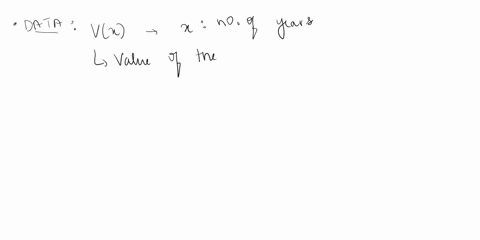 • DATA : V(x) → x : no. of years
↳ Value of the